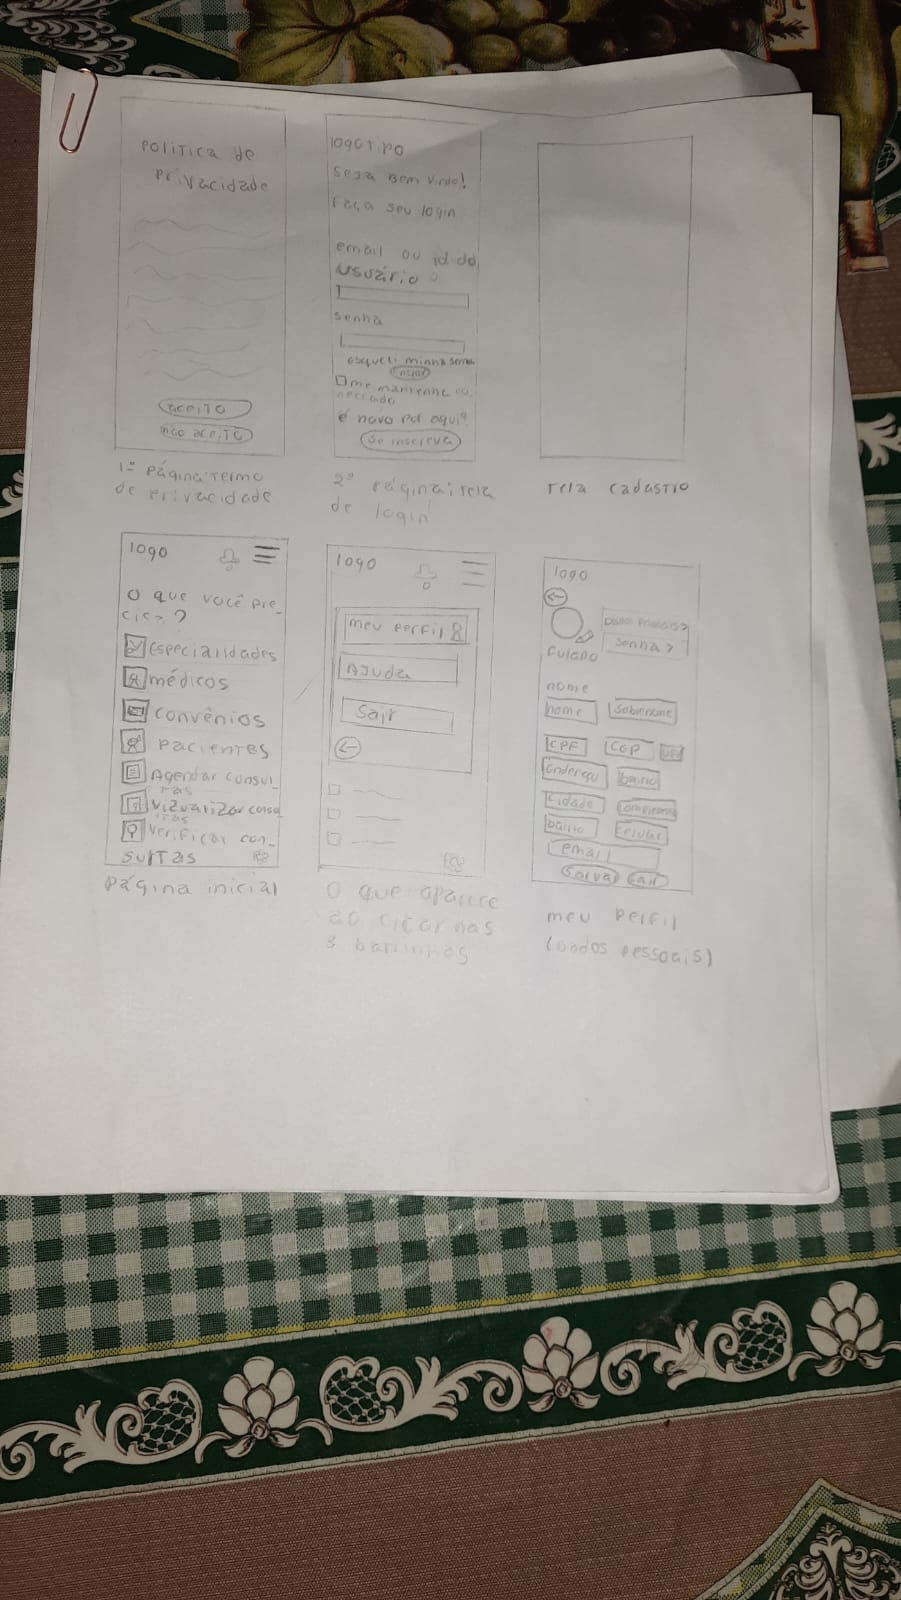 política de
privacidade
aceito
não aceito
1º página: termo
de privacidade
logotipo
seja bem vindo!
faça seu login
email ou id do
usuário
senha
esqueli minha senha
entrar
me mantenha co
nectado
é novo por aqui?
se inscreva
2º página: tela
de login
tela cadastro
logo
O que você pre_
cisa?
Especialidades
médicos
convênios
pacientes
Agendar consul_
tas
Vizualizar consul
tas
Verificar con_
sultas
página inicial
logo
meu perfil
Ajuda
Sair
O que aparece
ao clicar nas
3 barrinhas
logo
senha?
fulano
nome
nome
sobrenome
CPF
CEP
endereço
bairro
cidade
bairro
celular
email
Salvar
Sair
meu perfil
(dados pessoais)